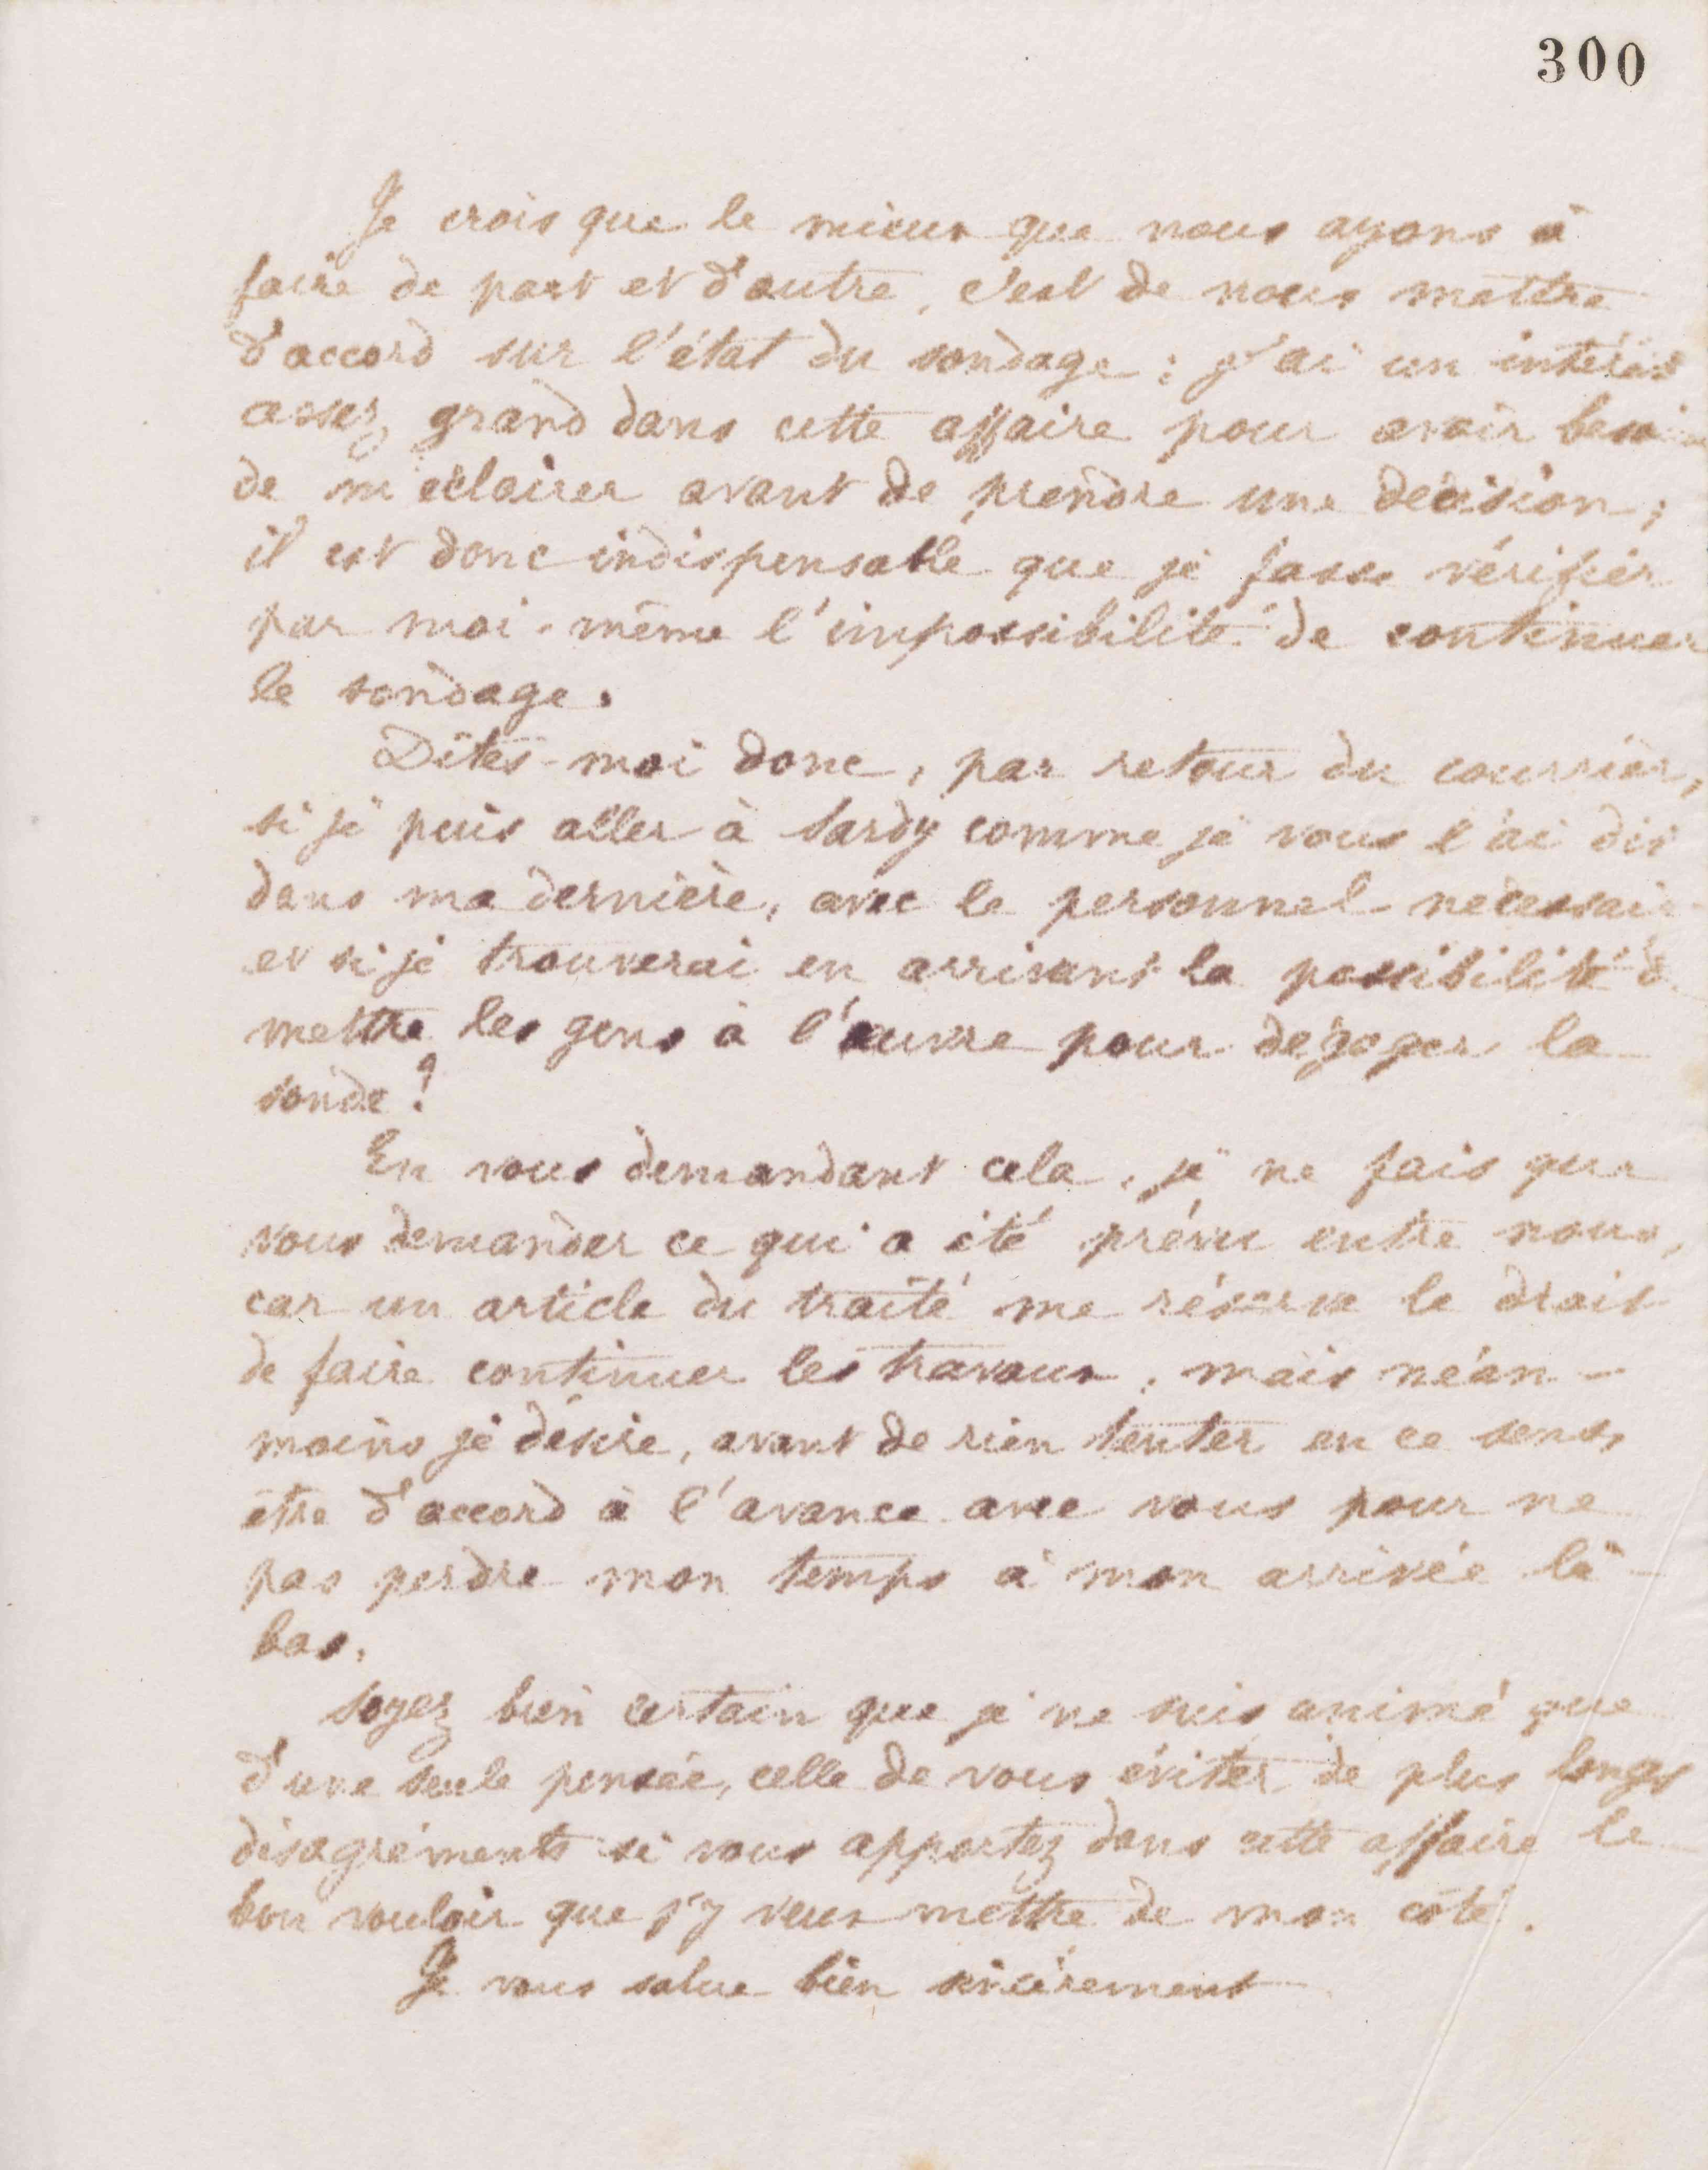 300
Je crois que le mieux que nous ayons à
faire de part et d'autre, c'est de nous mettre
d'accord sur l'état du sondage ; j'ai un intérêt
assez grand dans cette affaire pour avoir besoin
de m'éclairer avant de prendre une décision ;
il est donc indispensable que je fasse vérifier
par moi-même l'impossibilité de continuer
le sondage.
Dites-moi donc, par retour du courrier,
si je puis aller à Sardy comme je vous l'ai dit
dans ma dernière, avec le personnel nécessaire
et si je trouverai en arrivant la possibilité de
mettre les gens à l'œuvre pour dégager la
sonde ?
En vous demandant cela, je ne fais que
vous demander ce qui a été prévu entre nous,
car un article du traité me réserve le droit
de faire continuer les travaux, mais néan-
moins je désire, avant de rien tenter en ce sens,
être d'accord à l'avance avec vous pour ne
pas perdre mon temps à mon arrivée là-
bas.
Soyez bien certain que je ne suis animé que
d'une seule pensée, celle de vous éviter de plus longs
désagréments si vous apportez dans cette affaire le
bon vouloir que j'y veux mettre de mon côté.
Je vous salue bien sincèrement